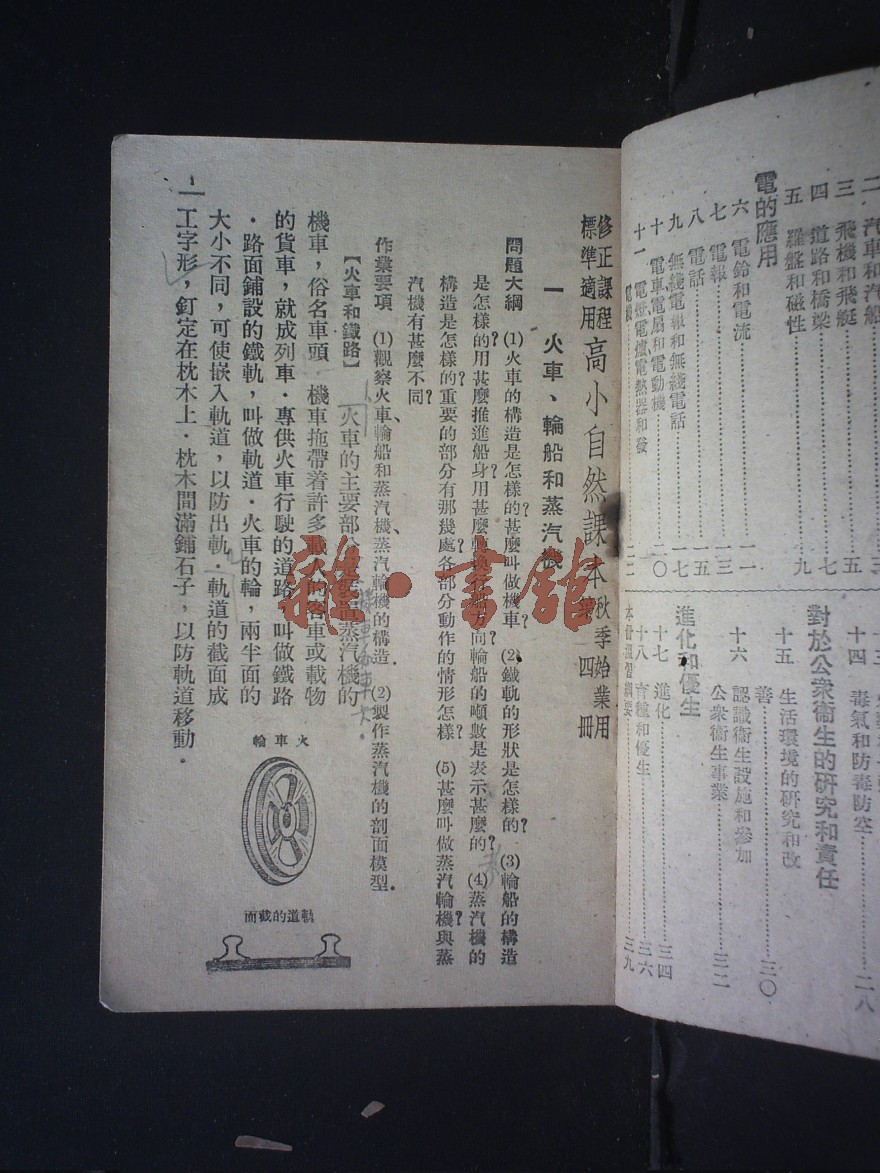 二 汽車和汽船
三 飛機和飛艇……五
四 道路和橋梁……七
五 羅盤和磁性……九
電的應用
六 電鈴和電流……一一
七 電報……一三
八 電話……一五
九 無綫電報和無綫電話……一七
十 電車電扇和電動機……二〇
十一 電燈電爐電熱器和發
電機……二二
十四 毒氣和防毒防空……二八
對於公衆衞生的研究和責任
十五 生活環境的研究和改
善……三〇
十六 認識衞生設施和參加
公衆衞生事業……三二
進化和優生
十七 進化……三四
十八 育種和優生……三六
本册温習綱要……三九
修正課程
標準適用
高小自然課本
秋季始業用
第四册
一 火車、輪船和蒸汽機
問題大綱 (1)火車的構造是怎樣的?甚麼叫做機車? (2)鐵軌的形狀是怎樣的? (3)輪船的構造
是怎樣的?用甚麼推進船身?用甚麼轉換行船方向?輪船的噸數是表示甚麼的? (4)蒸汽機的
構造是怎樣的?重要的部分有那幾處?各部分動作的情形怎樣? (5)甚麼叫做蒸汽輪機?與蒸
汽機有甚麼不同?
作業要項 (1)觀察火車、輪船和蒸汽機、蒸汽輪機的構造. (2)製作蒸汽機的剖面模型.
【火車和鐵路】 火車的主要部分 蒸汽機的
機車,俗名車頭.機車拖帶着許多載人的客車或載物
的貨車,就成列車.專供火車行駛的道路,叫做鐵路
.路面鋪設的鐵軌,叫做軌道.火車的輪,兩半面的
大小不同,可使嵌入軌道,以防出軌.軌道的截面成
工字形,釘定在枕木上.枕木間滿鋪石子,以防軌道移動.
一
火車輪
軌道的截面
雜·書館